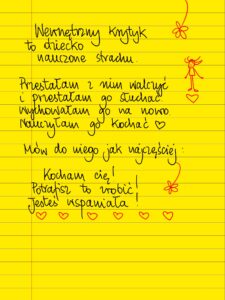 Wewnętrzny krytyk
to dziecko
nauczone strachu.
Przestałam z nim walczyć
i przestałam go słuchać.
Wychowałam go na nowo
Nauczyłam go kochać ♡
Mów do niego jak najczęściej:
Kocham cię!
Potrafisz to zrobić!
Jesteś wspaniała!